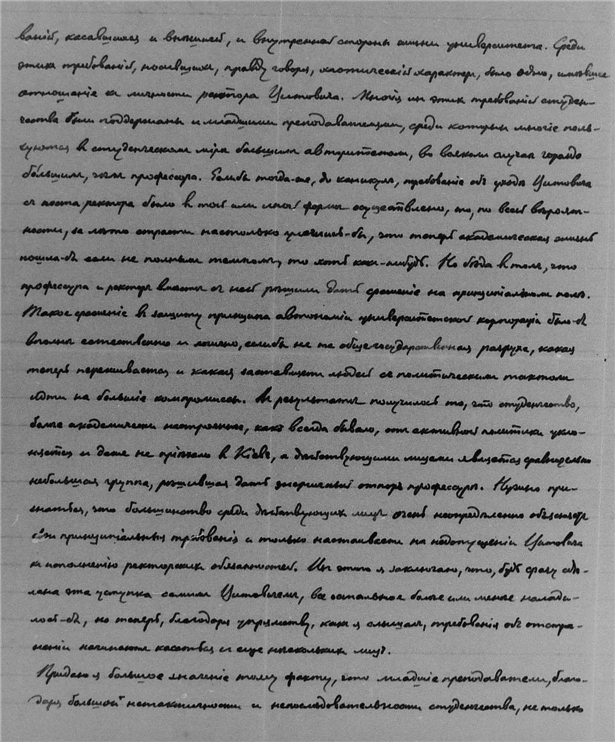 ваній, касавшихся и внѣшней, и внутренней стороны жизни университета. Среди
этихъ требованій, носившихъ, правду говоря, хаотическій характеръ, было одно, имѣвшее
отношеніе къ личности ректора Цитовича. Многія изъ этихъ требованій студен-
чества были поддержаны и младшими преподавателями, среди которыхъ многіе поль-
зуются въ студенческомъ мірѣ большимъ авторитетомъ, во всякомъ случаѣ гораздо
большимъ, чѣмъ профессура. Если-бъ тогда-же, до каникулъ, требованіе объ уходѣ Цитовича
съ поста ректора было въ той или иной формѣ осуществлено, то, по всей вѣроят-
ности, за лѣто страсти настолько улеглись-бы, что теперь академическая жизнь
пошла-бъ если не полнымъ темпомъ, то хоть какъ-нибудь. Но бѣда въ томъ, что
профессура и ректоръ вмѣстѣ съ ней рѣшили дать сраженіе на принципіальномъ полѣ.
Такое сраженіе въ защиту принципа автономіи университетской корпораціи было-бъ
вполнѣ естественно и логично, если-бъ не та общегосударственная разруха, какая
теперь переживается и какая заставляетъ людей съ политическимъ тактомъ
идти на большіе компромиссы. Въ результатѣ получилось то, что студенчество,
болѣе академически настроенное, какъ всегда бывало, отъ активной политики укло-
няется и даже не пріѣхало въ Кіевъ, а дѣйствующими лицами является сравнительно
небольшая группа, рѣшившая дать энергичный отпоръ профессурѣ. Нужно при-
знаться, что большинство среди дѣйствующихъ лицъ очень неопредѣленно
свои принципіальныя требованія и только настаиваетъ на недопущеніи Цитовича
къ исполненію ректорскихъ обязанностей. Изъ этого я заключаю, что, будь сразу сдѣ-
лана эта уступка самимъ Цитовичемъ, все остальное болѣе или менѣе налади-
лось-бъ, но теперь, благодаря упрямству, какъ я слышалъ, требованія объ отстра-
неніи начинаютъ касаться и еще нѣсколькихъ лицъ.
Придаю я большое значеніе тому факту, что младшіе преподаватели, благо-
даря большой нетактичности и непослѣдовательности студенчества, не только